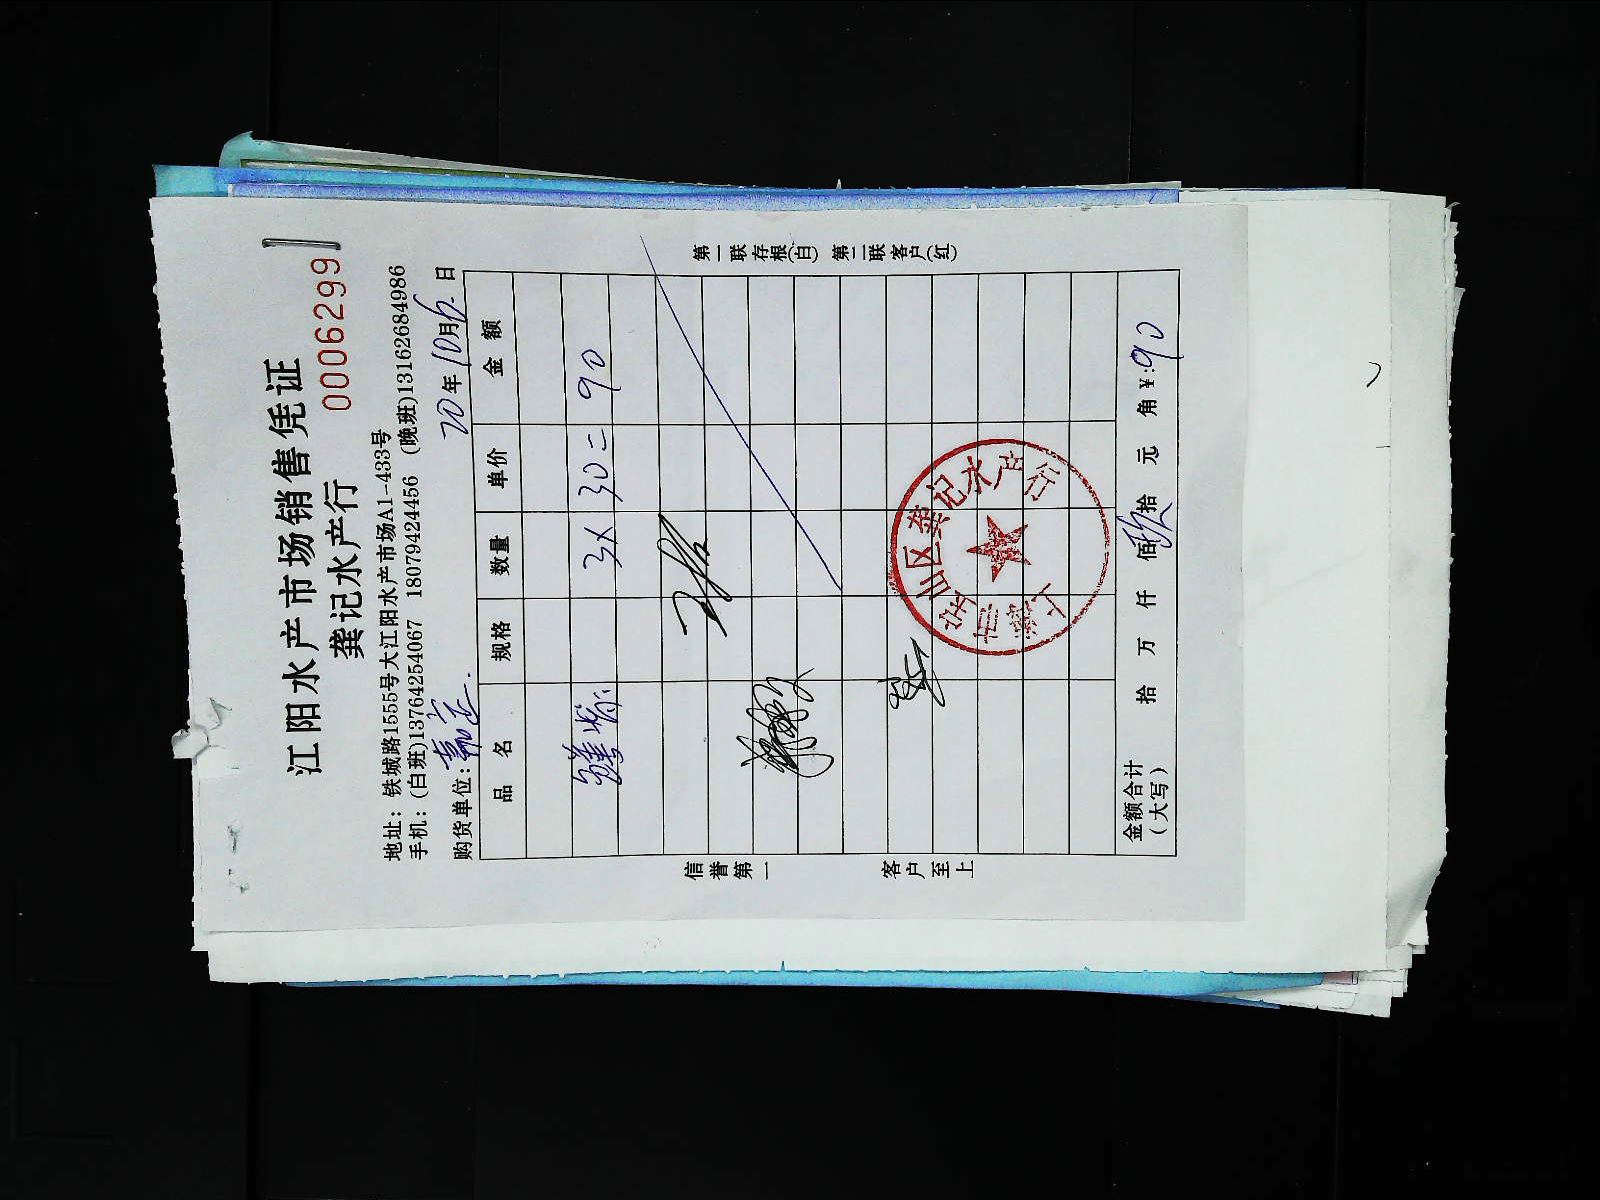 江阳水产市场销售凭证
龚记水产行 0006299
地址：铁城路1555号大江阳水产市场A1-433号
手机：(白班)13764254067 18079424456 (晚班)13162684986
购货单位：嘉定. 20年10月6日
品名 规格 数量 单价 金额
3× 30= 90
信誉第一 客户至上
第一联存根(白) 第二联客户(红)
上海市宝山区龚记水产行
金额合计(大写) 拾 万 仟 佰 玖拾 元 角 ¥:90